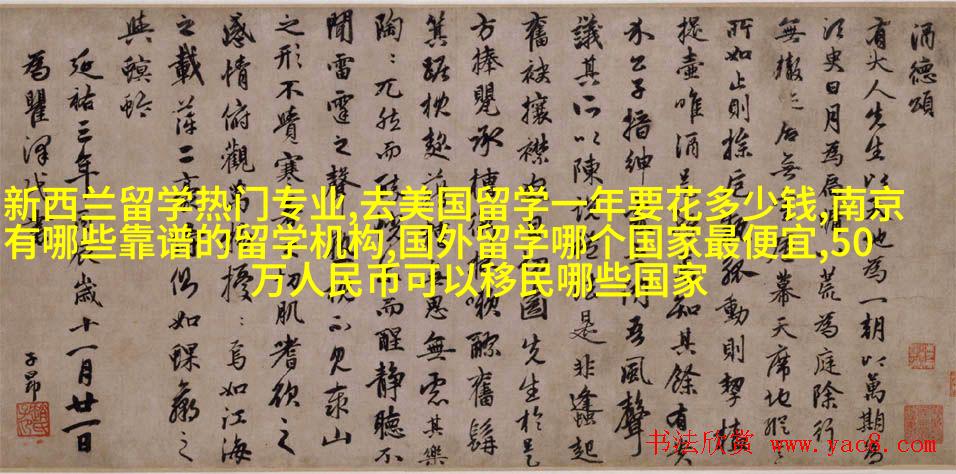 酒德頌
有大人先生以為一朝以萬期為
須臾日月為扃荒為庭除行
無轍迹居無幕天席地縱
所如止則操觚動則挈榼
提壺唯酒知其餘有貴
介公子搢紳吾風聲
議其所以陳是非蜂起
奮袂攘襟先生於是
方捧甖承槽漱醪奮髯
箕踞枕麴思無慮其樂
陶:兀然而而醒靜聽不
聞雷霆之聲不見泰山
之形不覺寒切肌嗜欲之
感情俯觀擾:焉如江海
之載浮二侧如蜾蠃之
與螟蛉
延祐三年歲十一月廿一日
為瞿澤
子昂
新西兰留学热门专业,去美国留学一年要花多少钱,南京
有哪些靠谱的留学机构,国外留学哪个国家最便宜,50
万人民币可以移民哪些国家
书法欣赏 www.yac8.com